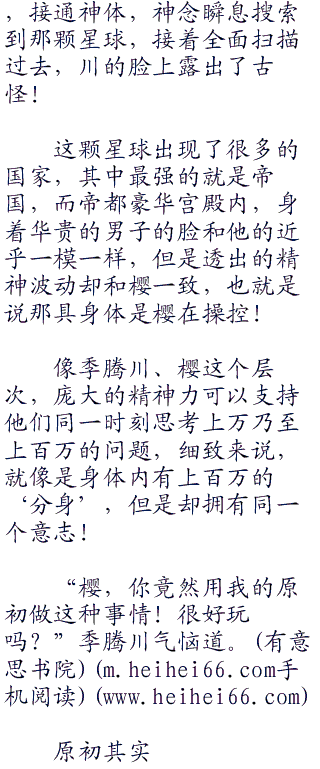 ，接通神体，神念瞬息搜索
到那颗星球，接着全面扫描
过去，川的脸上露出了古
怪！
这颗星球出现了很多的
国家，其中最强的就是帝
国，而帝都豪华宫殿内，身
着华贵的男子的脸和他的近
乎一模一样，但是透出的精
神波动却和樱一致，也就是
说那具身体是樱在操控！
像季腾川、樱这个层
次，庞大的精神力可以支持
他们同一时刻思考上万乃至
上百万的问题，细致来说，
就像是身体内有上百万的
‘分身’，但是却拥有同一
个意志！
“樱，你竟然用我的原
初做这种事情！很好玩
吗？”季腾川气恼道。(有意
思书院)(m.heihei66.com手
机阅读)(www.heihei66.com)
原初其实